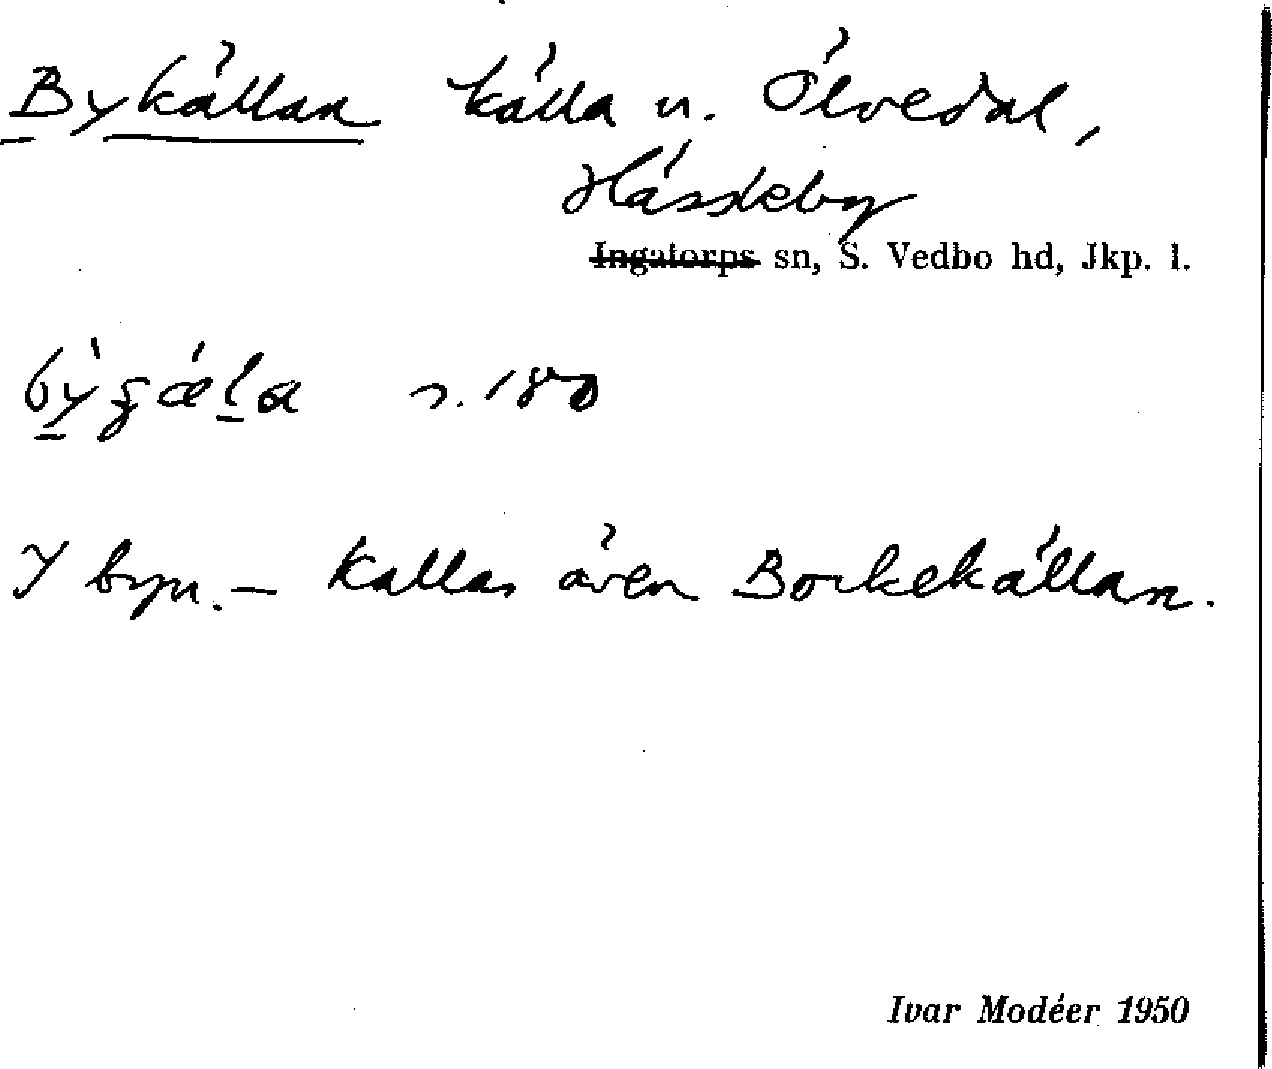 Bykällan källa u. Ölvedal,
Hässleby
Ingatorps sn, S. Vedbo hd, Jkp. l.
s. 180
I byn. – Kallas även Borkekällan.
Ivar Modéer 1950